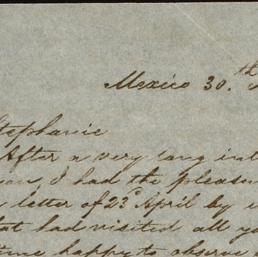 Mexico 30.th
Stephanie
After a very long int
on I had the pleasu
letter of 23d April by
at had visited all yo
time happy to observe